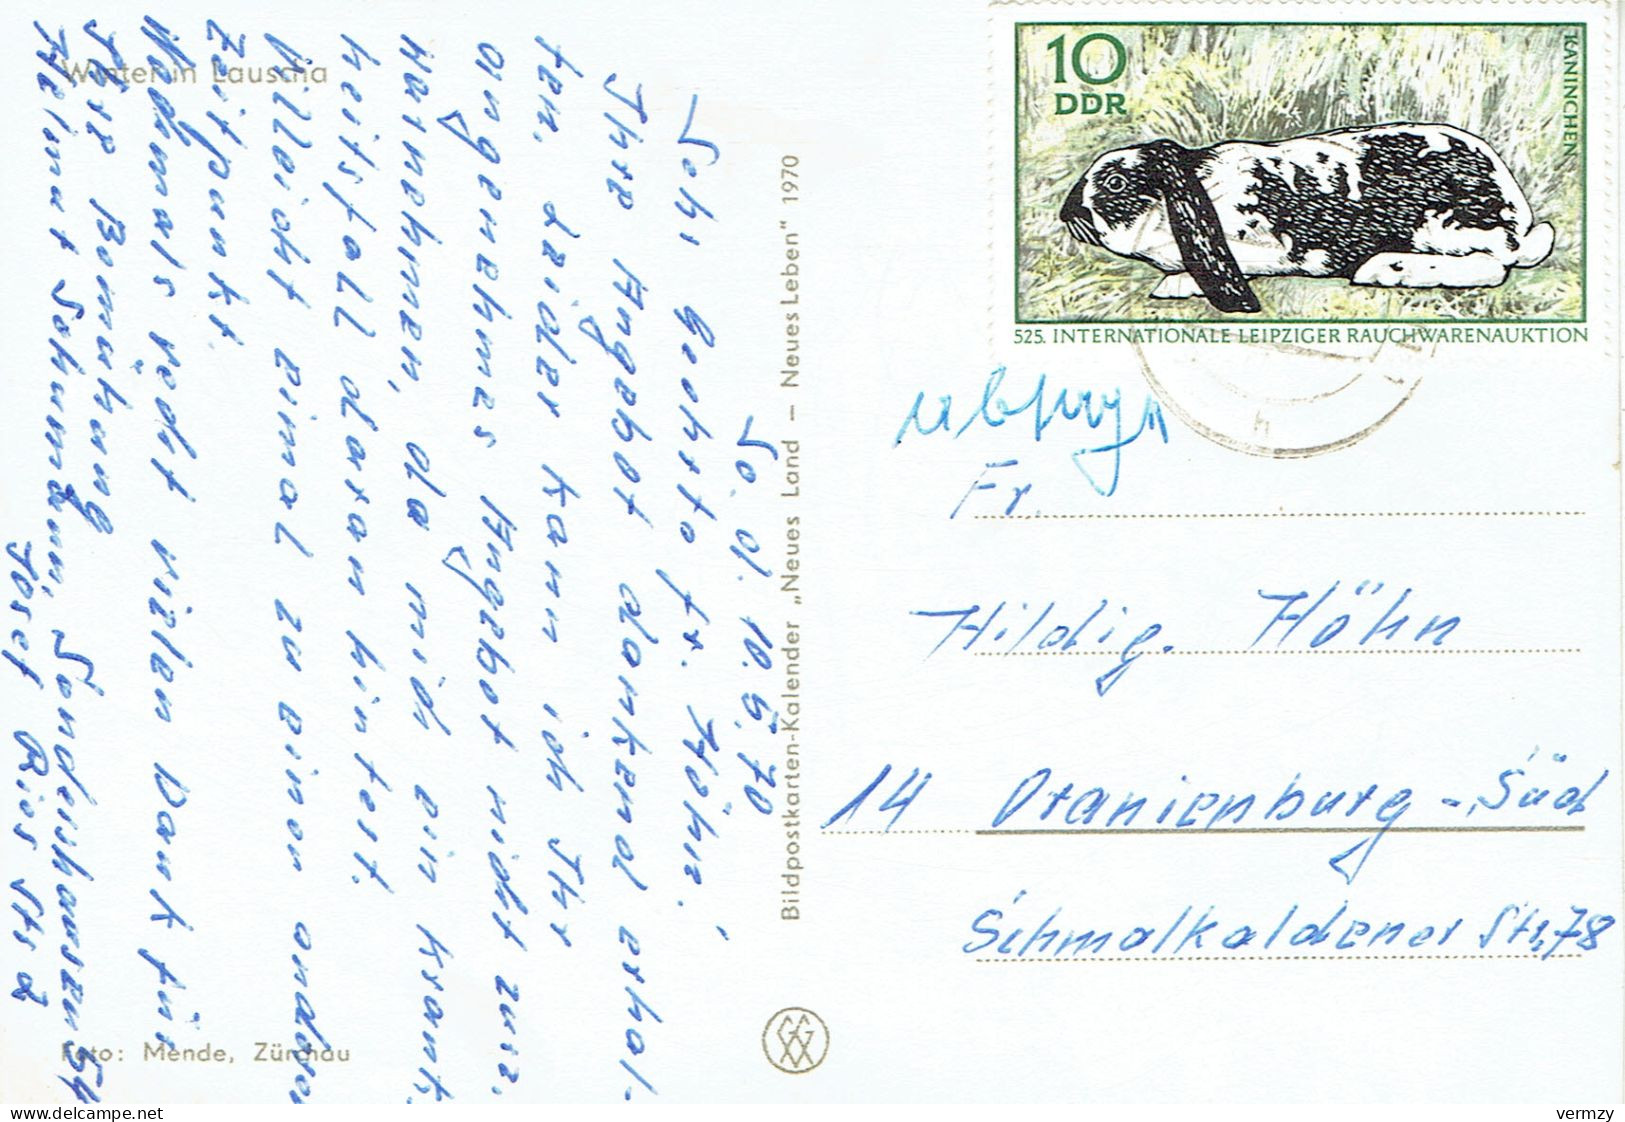 Winter in Lauscha
So. d. 10.5.70
Sehr geehrte Fr. Höhn!
Ihre Angebot dankend erhal-
ten. Leider kann ich Ihr
angenehmes Angebot nicht
warnehmen, da mich ein krank-
heitsfall daran hintert.
Villeicht einmal zu einen andern
Zeitpunkt.
Nochmals recht vielen Dank für
Ihre Bemühung
Helmut Schumann, Sondershausen 54
Josef Ries Str 2
Foto: Mende, Zürchau
Bildpostkarten-Kalender „Neues Land — Neues Leben" 1970
10
DDR
KANINCHEN
525. INTERNATIONALE LEIPZIGER RAUCHWARENAUKTION
h
Fr.
Hildig. Höhn
14 Oranienburg - Süd
Schmalkaldener Str. 78
delcampe.net
vermzy